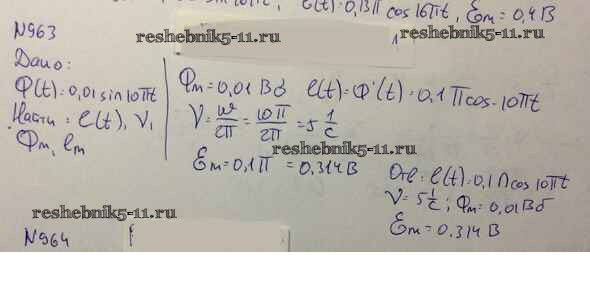 e(t)=0,13π cos 16πt, Ɛm=0,4В
N963
reshebnik5-11.ru
1
Дано:
Ф(t)=0,01 sin 10πt
Найти: e(t), ν,
Фm, em
Фm=0,01 Вб e(t)=Ф'(t)=0,1π cos·10πt
ν=ω/2π=10π/2π=5 1/c
reshebnik5-11.ru
Ɛm=0,1π=0,314В
Отв: e(t)=0,1π cos 10πt
ν=5 1/c; Фm=0,01Вб
Ɛm=0.314 В
reshebnik5-11.ru
N964